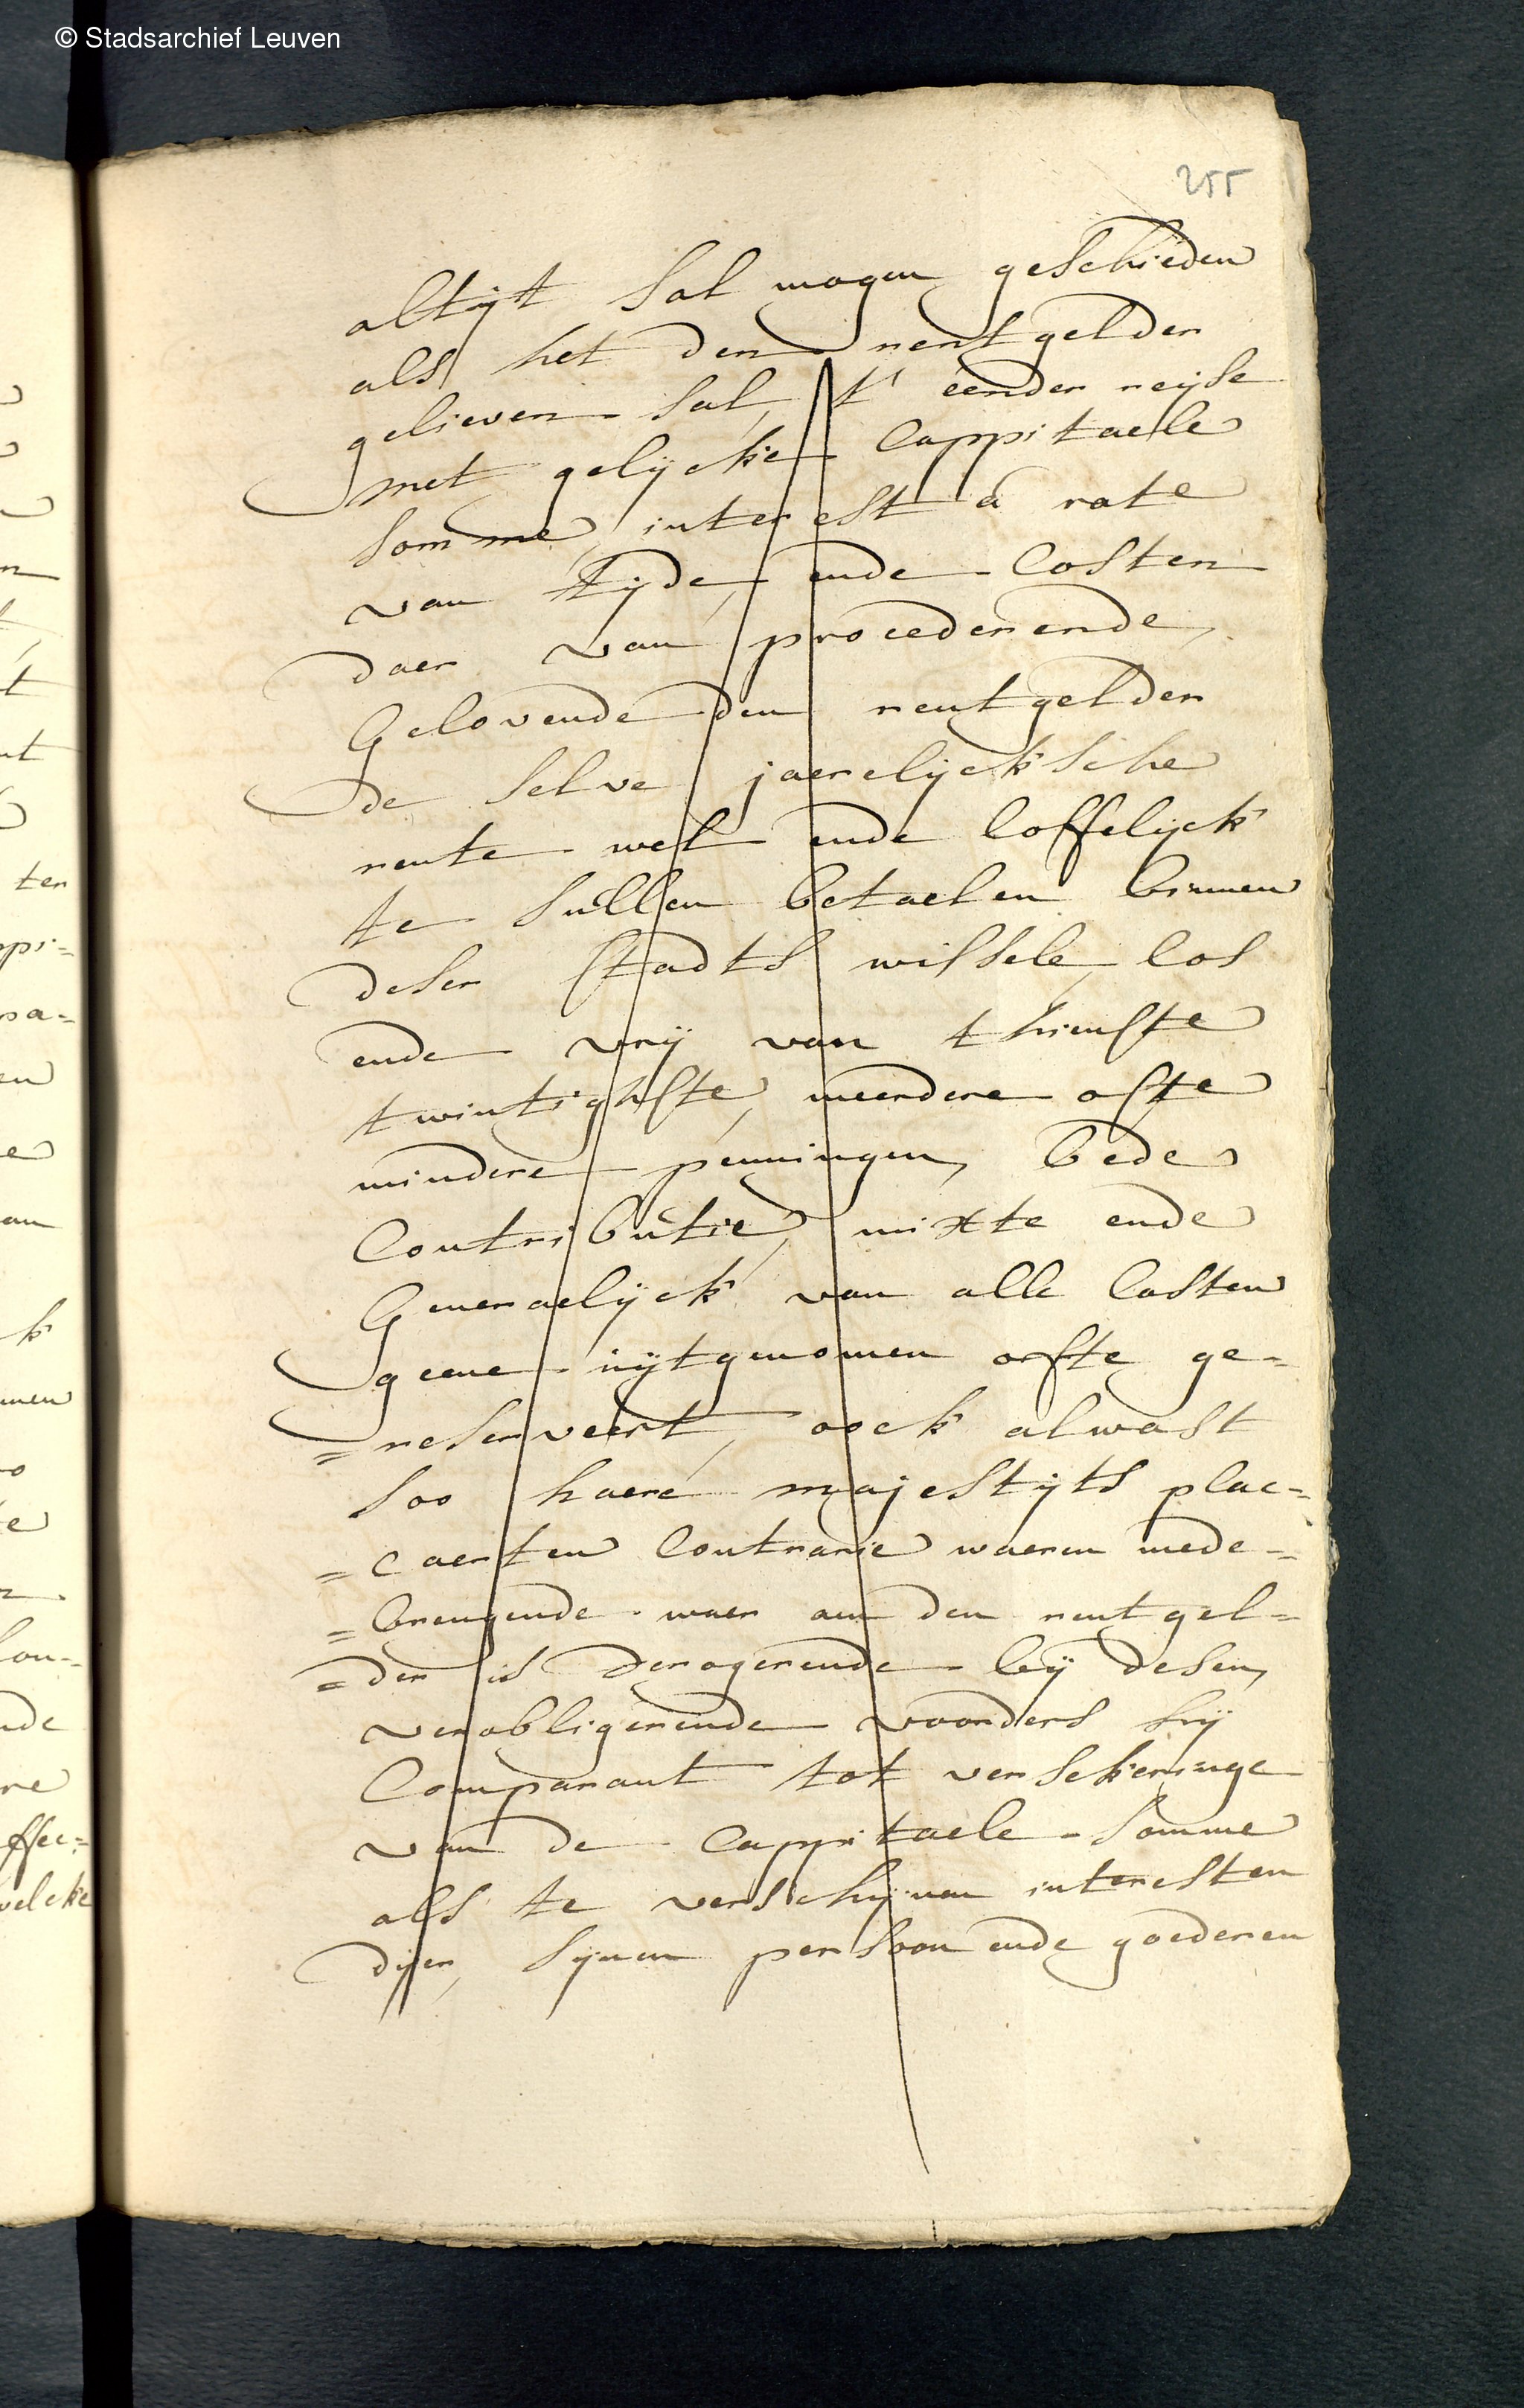 © Stadsarchief Leuven
255
altijt sal mogen geschieden
als het den rentgelder
gelieven sal, t' eender reijse
met gelijcke Cappitaele
somme, interest à rate
van tijde, ende Costen
daer van procederende,
Gelovende den rentgelder
de selve jaerelijcksche
rente wel ende loffelijck
te sullen betaelen binnen
deser stadts wissele, los
ende vrij van thienste
twintighste, meerdere ofte
mindere penningen, bede
Contributie, mixte ende
Generaelijck van alle lasten
geene uijtgenomen ofte ge=
=reserveert, oock alwast
soo haere majestijts plac=
=caerten Contrarie waeren mede=
=brengende waer aen den rentgel=
=der is derogerende bij desen,
verobligerende voorders hij
Comparant tot versekeringe
van de Cappitaele somme
als te verschijnen interesten
dijer, sijnen persoon ende goederen